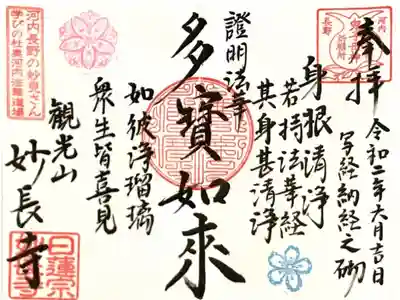 奉拝
令和二年六月吉日
写経納経之砌
身根清浄
若持法華経
其身甚清浄
證明法華
多寳如来
如彼浄瑠璃
衆生皆喜見
観光山
妙長寺
河内長野の妙見さん
学びの社奥河内法華道場
河内
長野
祈願所
日蓮宗
妙長寺